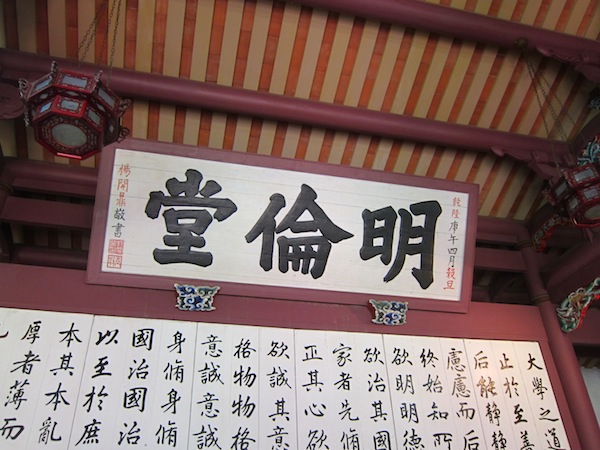 乾隆庚午四月穀旦
明倫堂
楊開鼎敬書
大學之道
止於至善
后能靜靜
慮慮而后
終始知所
欲明明德
欲治其國
家者先脩
正其心欲
欲誠其意
格物物格
意誠意誠
身脩身脩
國治國治
以至於庶
本其本亂
厚者薄而